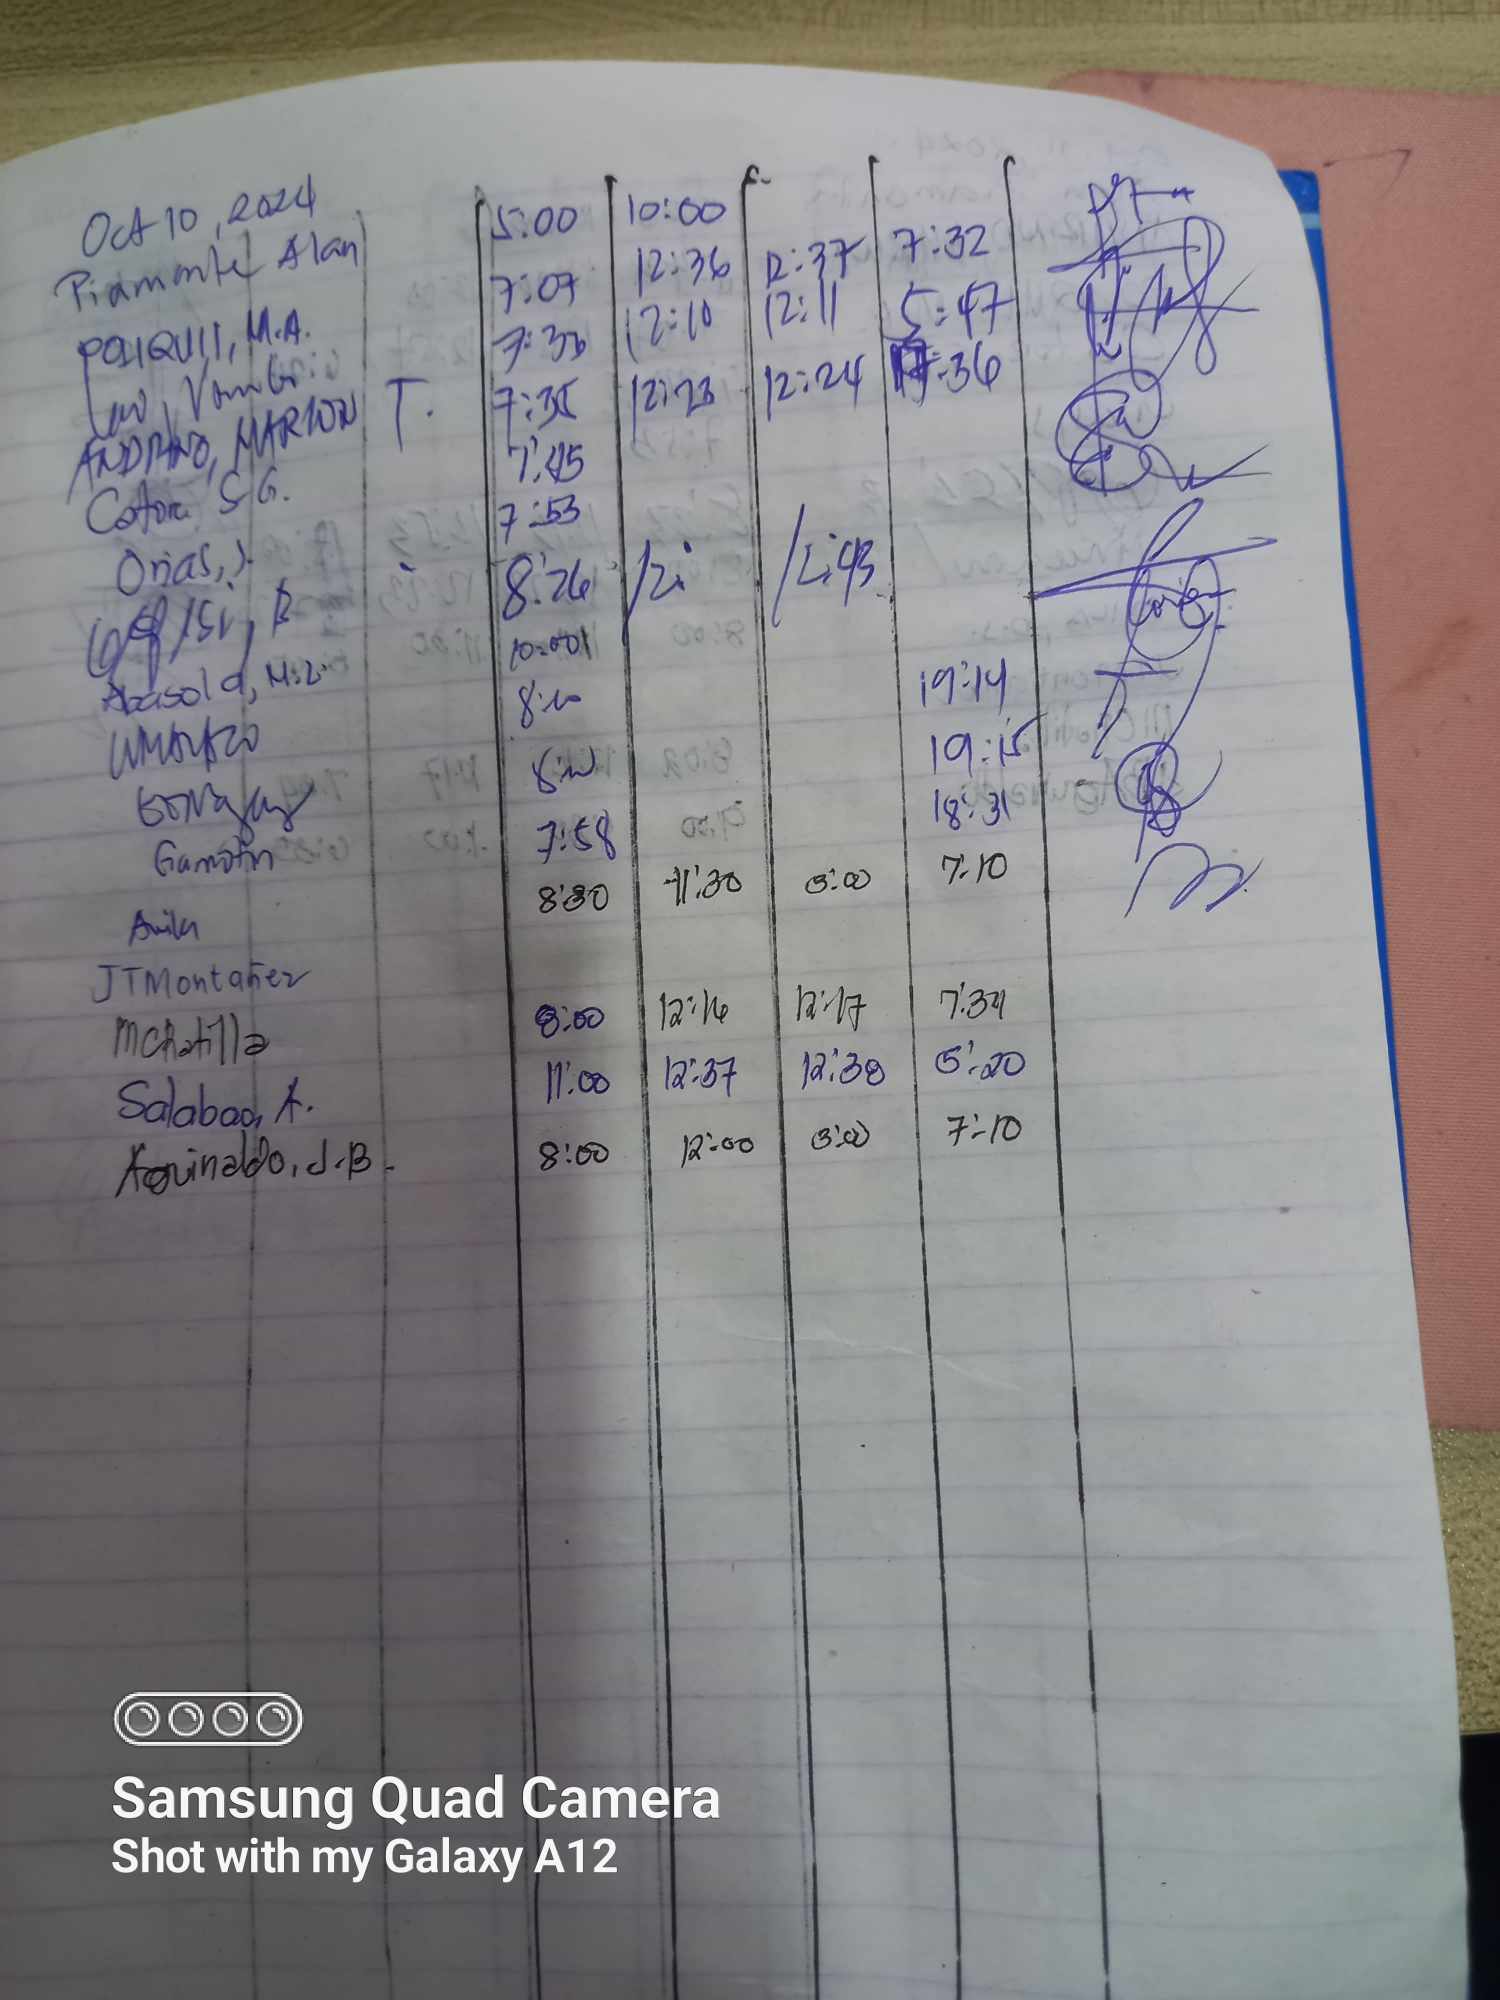 Oct 10, 2024
Piamonte Alan 5:00 10:00
POLIQUIT, M.A. 7:07 12:36 12:37 7:32
7:33 12:10 12:11 5:47
ANDRINO, MARLON T. 7:35 12:23 12:24 17:36
S.G. 7:45
Orias, J. 7:53
B 8:26 12: 12:43
Abasola, M.L. 10:001
8:10 19:14
19:15
Gamotin 7:58 18:31
Avila 8:30 11:30 3:00 7:10
JTMontañez
MChatilla 8:00 12:16 12:17 7:34
Salabao, A. 11:00 12:37 12:38 5:20
Aguinaldo, J.B. 8:00 12:00 3:00 7:10
Samsung Quad Camera
Shot with my Galaxy A12